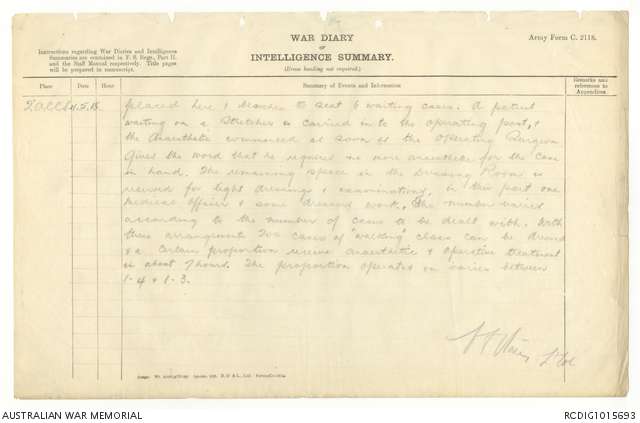 WAR DIARY
or
INTELLIGENCE SUMMARY.
(Erase heading not required.)
Army Form C. 2118.
Instructions regarding War Diaries and Intelligence
Summaries are contained in F. S. Regs., Part II.
and the Staff Manual respectively. Title pages
will be prepared in manuscript.
Place Date Hour Summary of Events and Information Remarks and references to Appendices
placed here & Benches to seat 6 waiting cases. A patient
waiting on a stretcher is carried in to the operating part, &
the Anaesthetic commenced as soon as the Operating Surgeon
gives the word that he requires no more anaesthetic for the case
in hand. The remaining space in the Dressing Room is
reserved for light dressings & examinations, in this part one
Medical Officer & some dressers work, the number varied
according to the number of cases to be dealt with. With
these arrangements 200 cases of "walking" class can be dressed
& a certain proportion receive anaesthetic & operative treatment
in about 7 hours. The proportion operated on varies between
1-4 & 1-3.
Lt Col
AUSTRALIAN WAR MEMORIAL
RCDIG1015693